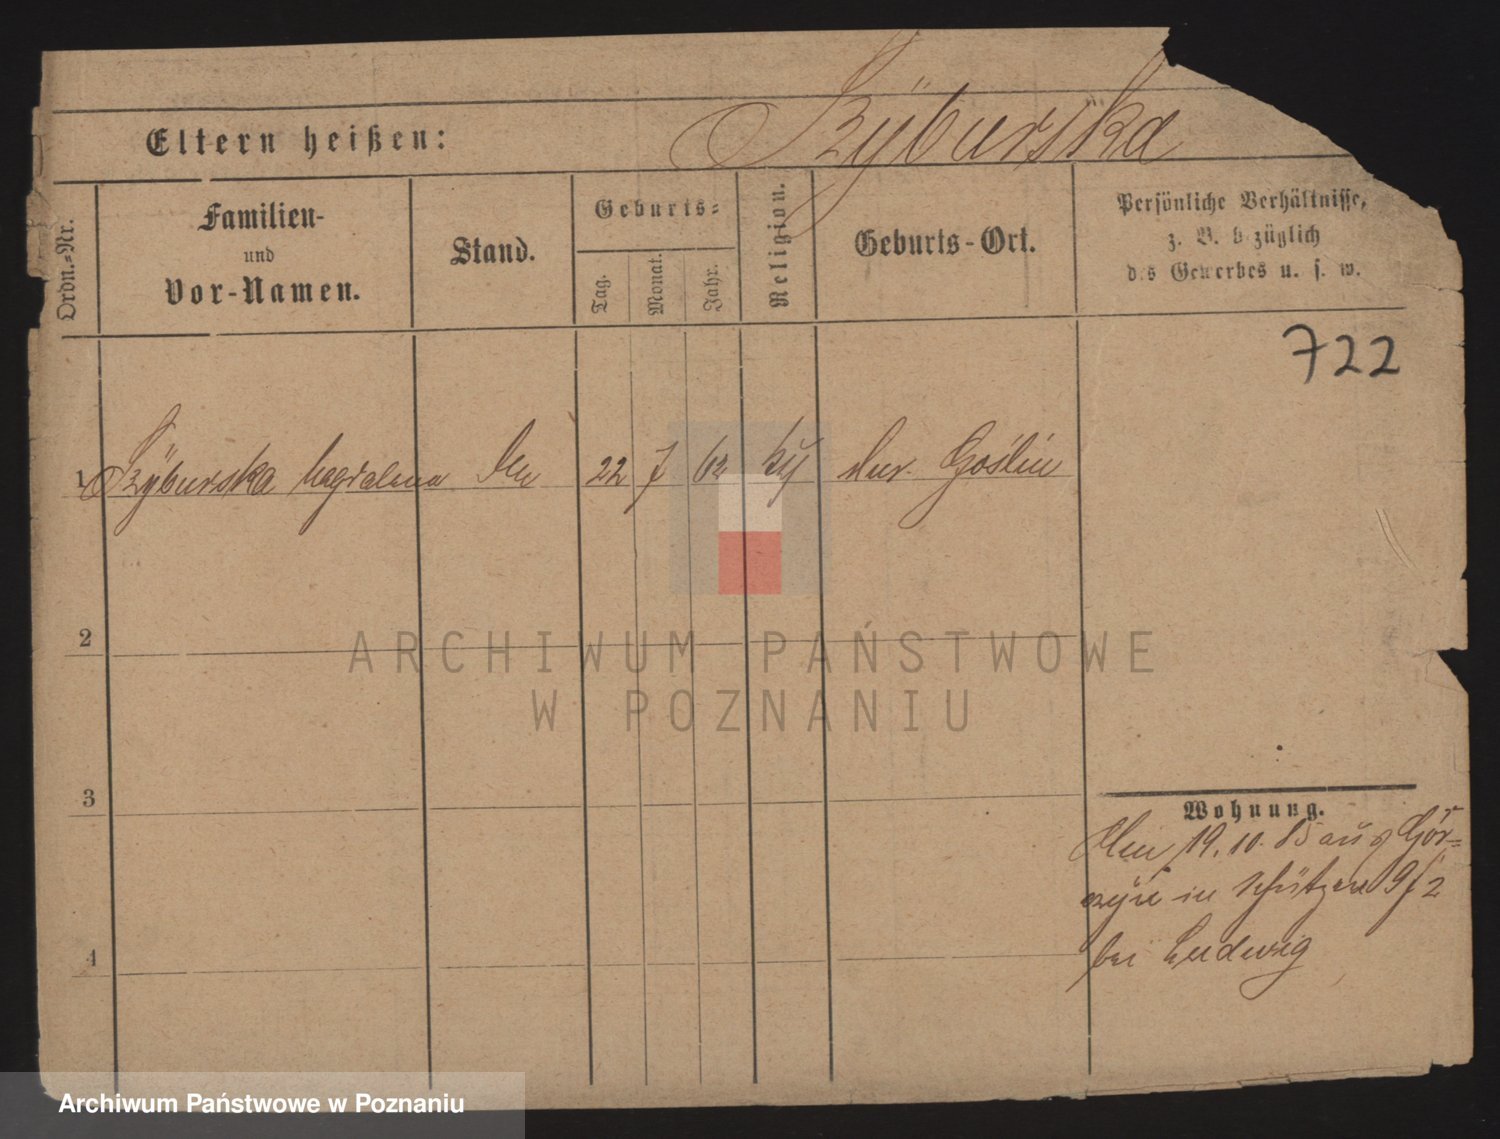 Szyburska
Eltern heißen:
Ordn.-Nr.
Familien-
und
Vor-Namen.
Stand.
Geburts-
Tag.
Monat.
Jahr.
Religion.
Geburts-Ort.
Persönliche Verhältnisse,
z. B. bezüglich
des Gewerbes u. s. w.
722
1 Szyburska Magdalena 22 7 62 Mur. Goślin
2
3
4
Wohnung.
19. 10. 85 aus Gór-
czyn in Schützen 9/2
bei Ludwig
ARCHIWUM PAŃSTWOWE
W POZNANIU
Archiwum Państwowe w Poznaniu